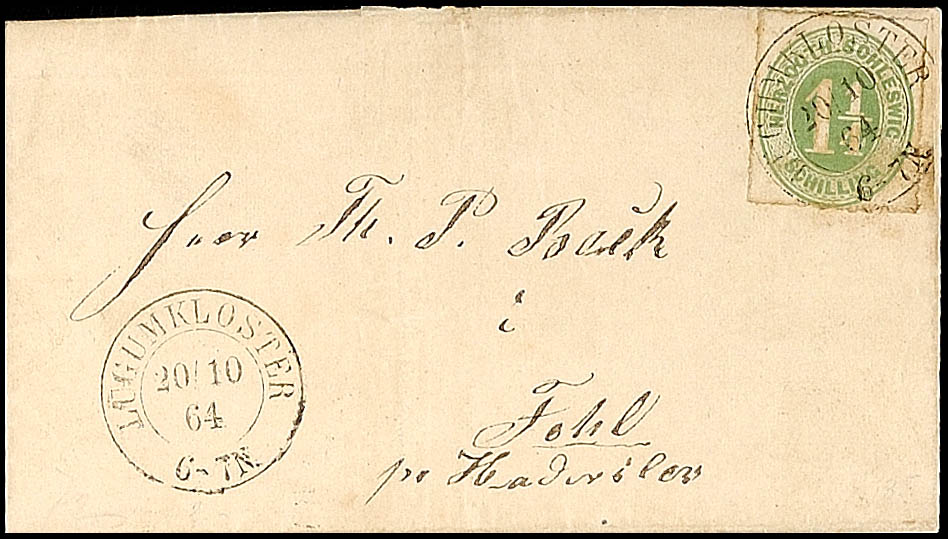 HERZOGTH. SCHLESWIG
1⅓
SCHILLING
LÜGUMKLOSTER
20/10
64
6-7N
Herr Th. P. Back
i
Fohl
pr Haderslev
LÜGUMKLOSTER
20/10
64
6-7N